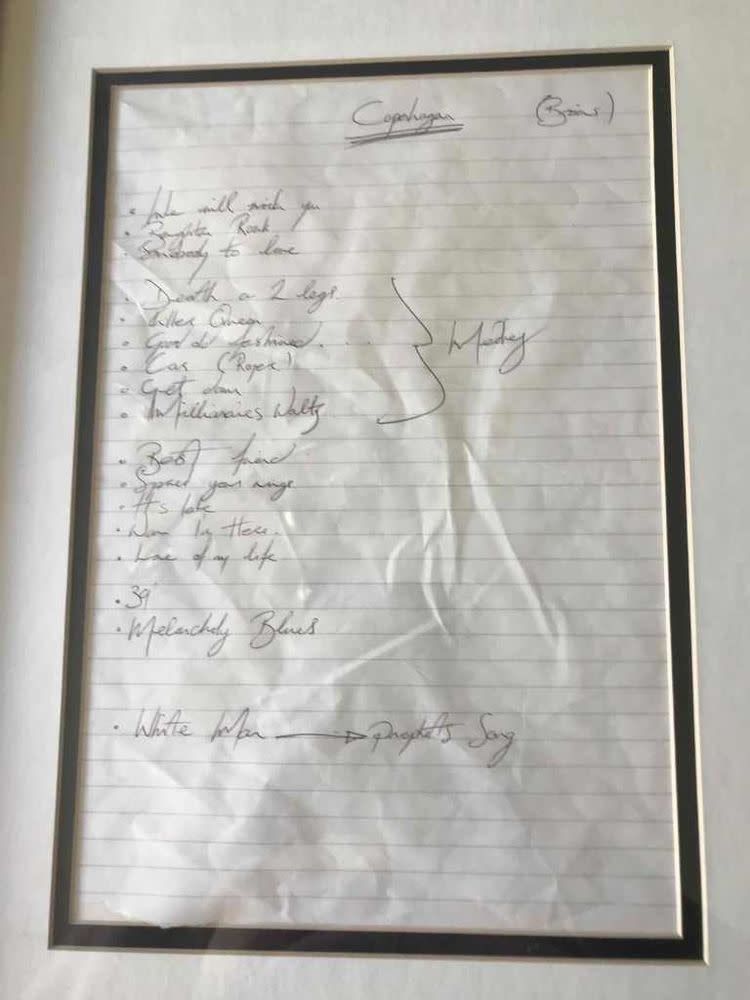 Copenhagan (Brians)
• We will rock you
• Brighton Rock
• Somebody to love
• Death on 2 legs.
• Killer Queen
• Good old fashioned . . . Medley
• Car (Roger)
• Get down
• Millionaires Waltz
• Best friend
• Spread your wings
• It's late
• Now I'm Here.
• Love of my life
• 39'
• Melancholy Blues
• White Man → Prophets Song